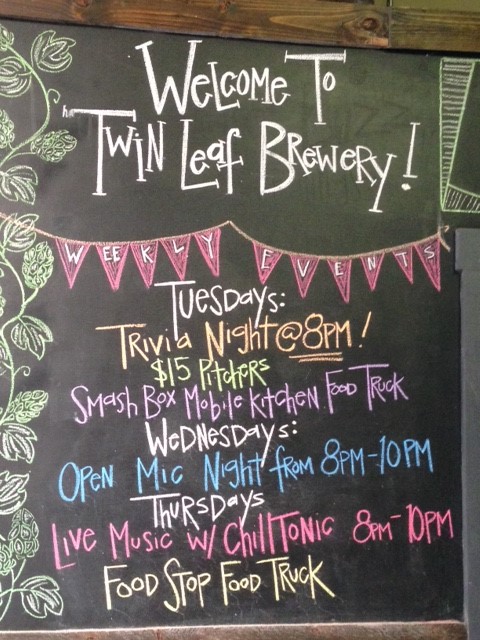 Welcome To
Twin Leaf Brewery!
WEEKLY EVENTS
Tuesdays:
Trivia Night @ 8PM!
$15 Pitchers
Smash Box Mobile Kitchen Food Truck
Wednesdays:
Open Mic Night from 8PM-10PM
Thursdays
Live Music w/ ChillTonic 8PM-10PM
Food Stop Food Truck